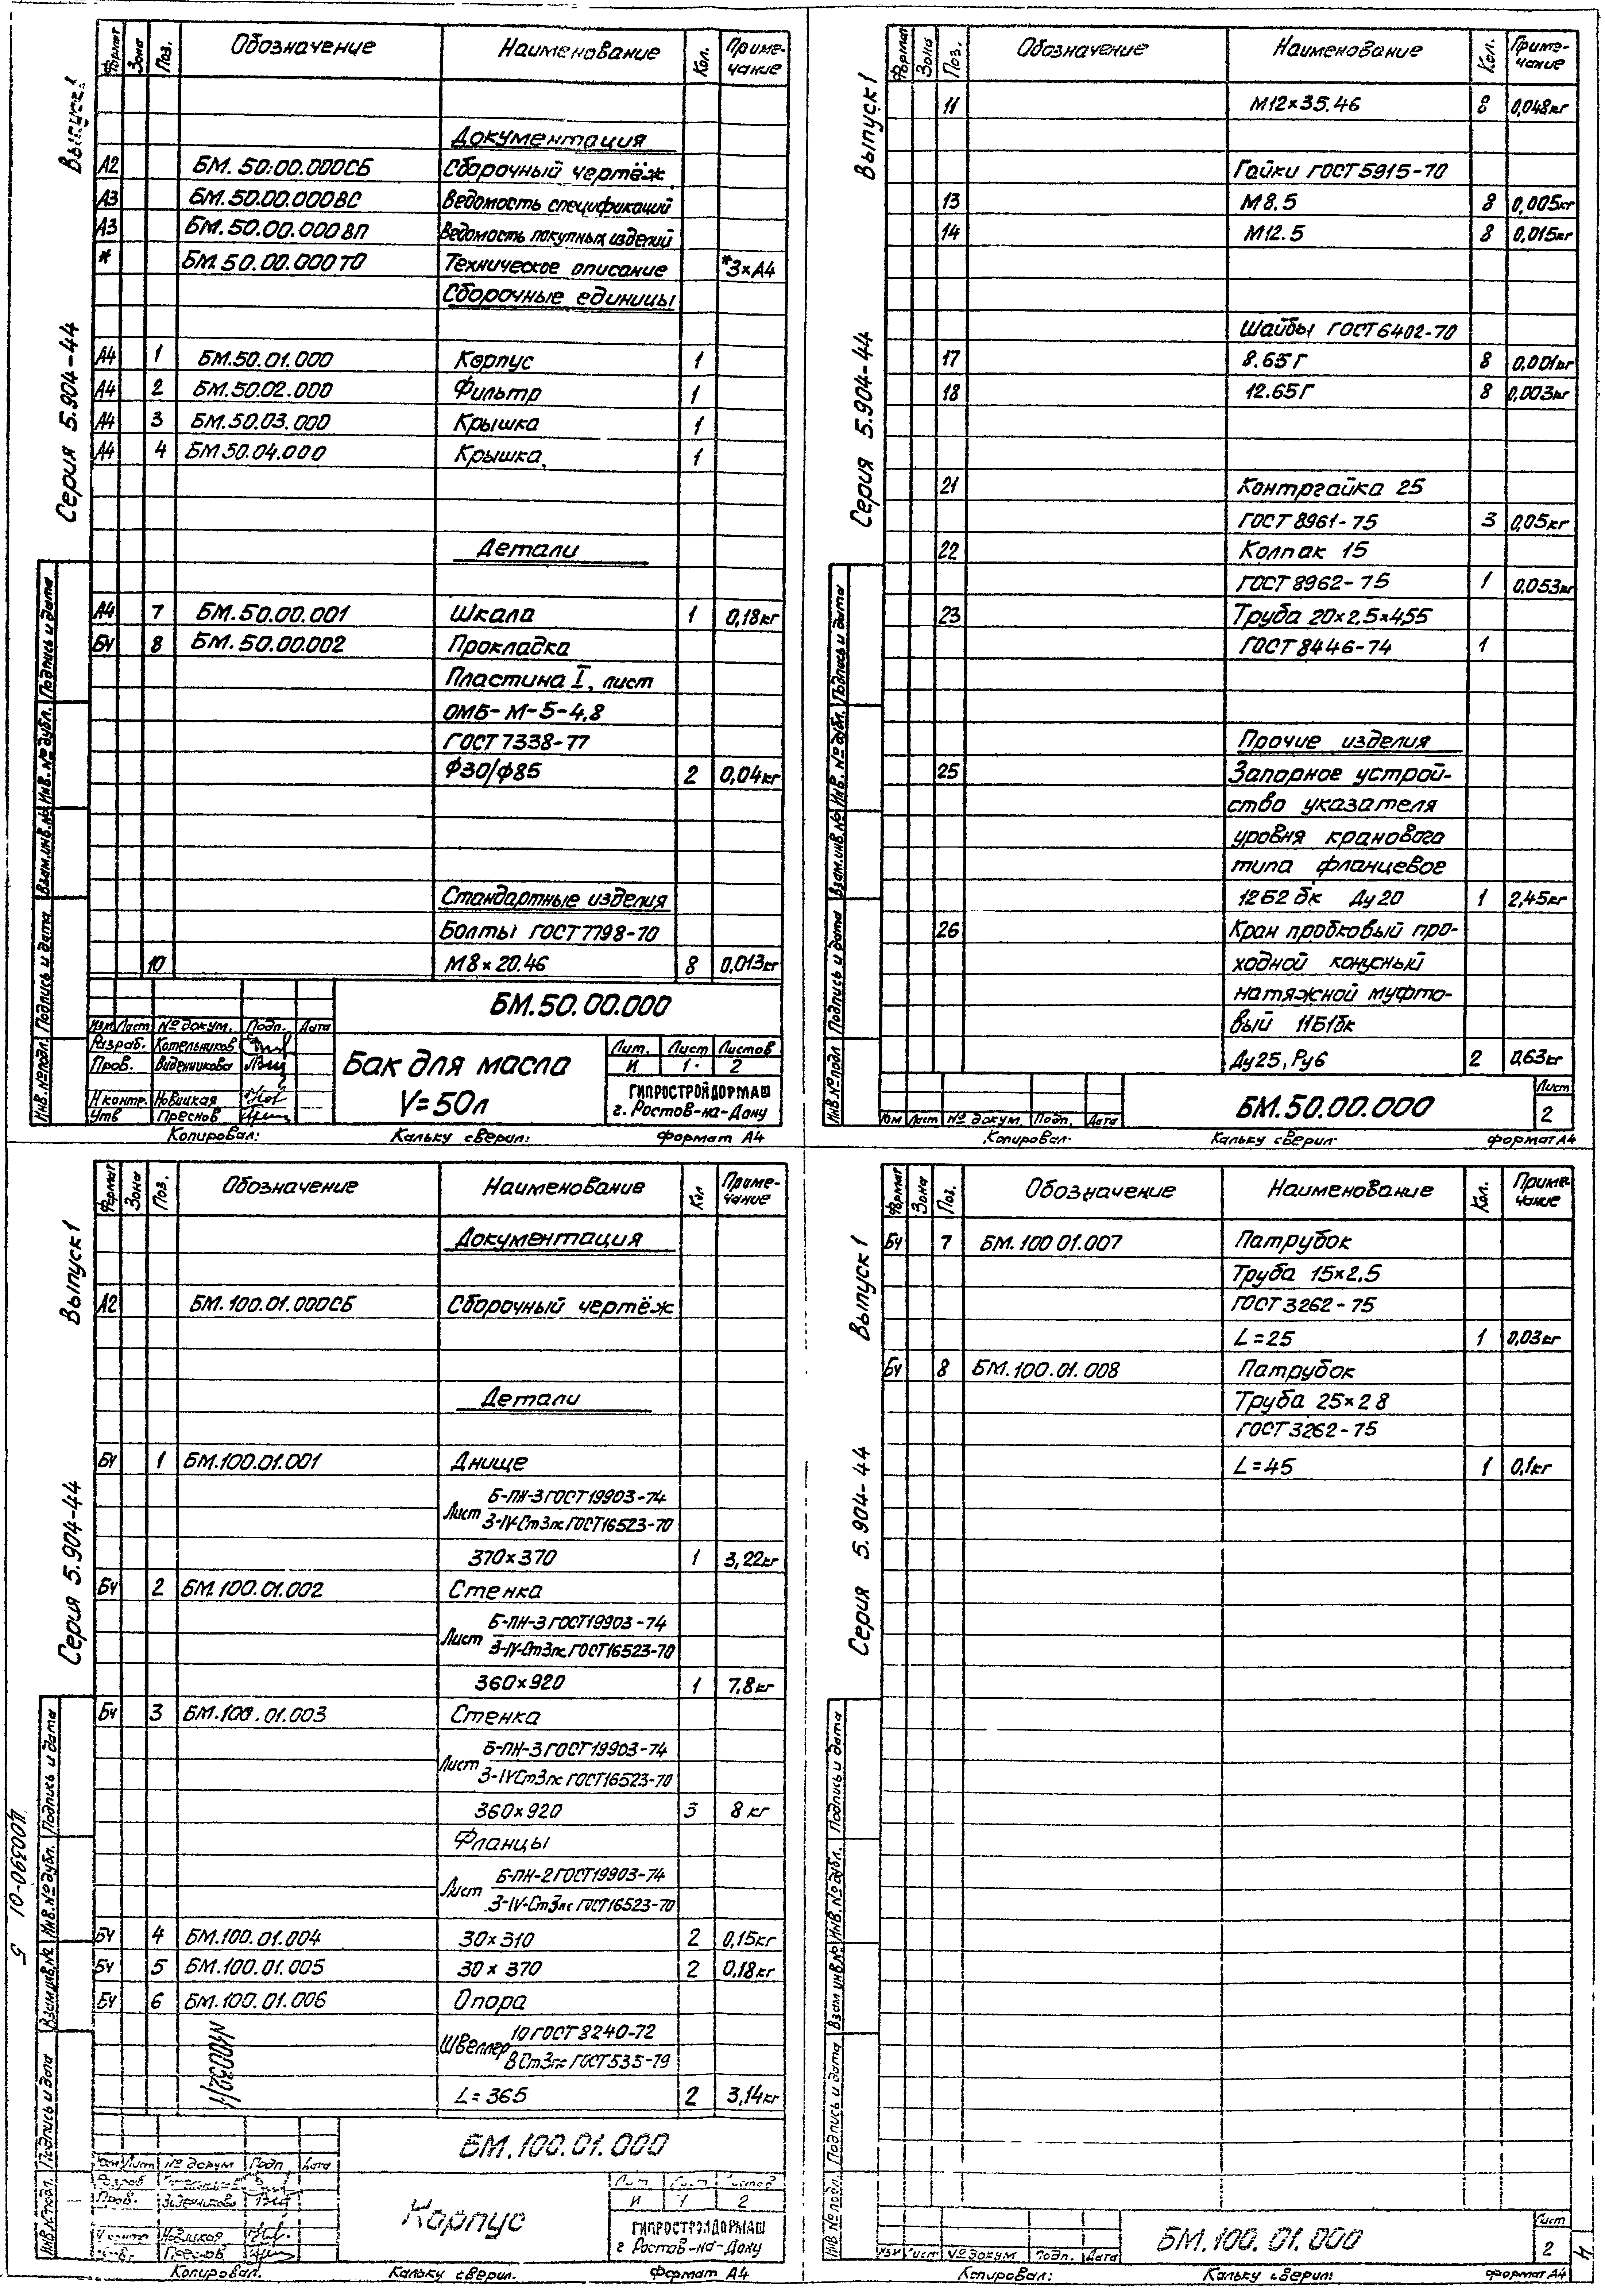 Серия 5.904-44 Выпуск 1
Формат Зона Поз. Обозначение Наименование Кол. Приме-
чание
Документация
А2 БМ.50.00.000СБ Сборочный чертёж
А3 БМ.50.00.000ВС Ведомость спецификаций
А3 БМ.50.00.000ВП Ведомость покупных изделий
* БМ.50.00.000ТО Техническое описание *3×А4
Сборочные единицы
А4 1 БМ.50.01.000 Корпус 1
А4 2 БМ.50.02.000 Фильтр 1
А4 3 БМ.50.03.000 Крышка 1
А4 4 БМ 50.04.000 Крышка. 1
Детали
А4 7 БМ.50.00.001 Шкала 1 0,18кг
БЧ 8 БМ.50.00.002 Прокладка
Пластина I, лист
ОМБ-М-5-4,8
ГОСТ 7338-77
Ф30/Ф85 2 0,04кг
Стандартные изделия
Болты ГОСТ 7798-70
10 М8×20.46 8 0,013кг
Инв.№подл. Подпись и дата Взам.инв.№ Инв.№дубл. Подпись и дата
БМ.50.00.000
Изм Лист № докум. Подп. Дата
Разраб. Котельников
Пров. Виденникова
Н контр. Новицкая
Утв Преснов
Бак для масла
V=50л
Лит. Лист Листов
И 1 2
ГИПРОСТРОЙДОРМАШ
г. Ростов-на-Дону
Копировал: Кальку сверил: Формат А4
Серия 5.904-44 Выпуск 1
Формат Зона Поз. Обозначение Наименование Кол. Приме-
чание
11 М12×35.46 8 0,048кг
Гайки ГОСТ 5915-70
13 М8.5 8 0,005кг
14 М12.5 8 0,015кг
Шайбы ГОСТ 6402-70
17 8.65Г 8 0,001кг
18 12.65Г 8 0,003кг
21 Контргайка 25
ГОСТ 8961-75 3 0,05кг
22 Колпак 15
ГОСТ 8962-75 1 0,053кг
23 Труба 20×2,5×455
ГОСТ 8446-74 1
Прочие изделия
25 Запорное устрой-
ство указателя
уровня кранового
типа фланцевое
12б2 бк Ду 20 1 2,45кг
26 Кран пробковый про-
ходной конусный
натяжной муфто-
вый 11Б1бк
Ду25, Ру6 2 0,63кг
Инв.№подл. Подпись и дата Взам.инв.№ Инв.№дубл. Подпись и дата
Изм Лист № докум. Подп. Дата
БМ.50.00.000
Лист
2
Копировал: Кальку сверил: Формат А4
Серия 5.904-44 Выпуск 1
Формат Зона Поз. Обозначение Наименование Кол Приме-
чание
Документация
А2 БМ.100.01.000СБ Сборочный чертёж
Детали
БЧ 1 БМ.100.01.001 Днище
Лист Б-ПН-3 ГОСТ 19903-74
3-IV-Ст3пс ГОСТ 16523-70
370×370 1 3,22кг
БЧ 2 БМ.100.01.002 Стенка
Лист Б-ПН-3 ГОСТ 19903-74
3-IV-Ст3пс ГОСТ 16523-70
360×920 1 7,8кг
БЧ 3 БМ.100.01.003 Стенка
Лист Б-ПН-3 ГОСТ 19903-74
3-IV Ст3пс ГОСТ 16523-70
360×920 3 8 кг
Фланцы
Лист Б-ПН-2 ГОСТ 19903-74
3-IV-Ст3пс ГОСТ 16523-70
БЧ 4 БМ.100.01.004 30×310 2 0,15кг
БЧ 5 БМ.100.01.005 30×370 2 0,18кг
БЧ 6 БМ.100.01.006 Опора
Швеллер 10 ГОСТ 8240-72
В Ст3пс ГОСТ 535-79
L=365 2 3,14кг
Ц00390-01 5
Инв.№подл. Подпись и дата Взам.инв.№ Инв.№дубл. Подпись и дата
БМ.100.01.000
Изм Лист № докум Подп Дата
Разраб
Пров. Виденникова
Н контр Новицкая
Утв Преснов
Корпус
Лит Лист Листов
И 1 2
ГИПРОСТРОЙДОРМАШ
г Ростов-на-Дону
Копировал. Кальку сверил. Формат А4
Серия 5.904-44 Выпуск 1
Формат Зона Поз. Обозначение Наименование Кол. Приме-
чание
БЧ 7 БМ.100 01.007 Патрубок
Труба 15×2,5
ГОСТ 3262-75
L=25 1 0,03кг
БЧ 8 БМ.100.01.008 Патрубок
Труба 25×2 8
ГОСТ 3262-75
L=45 1 0,1кг
Инв № подл. Подпись и дата Взам инв.№ Инв.№дубл. Подпись и дата
Изм Лист № докум Подп. Дата
БМ.100.01.000
Лист
2
4
Копировал: Кальку сверил: Формат А4